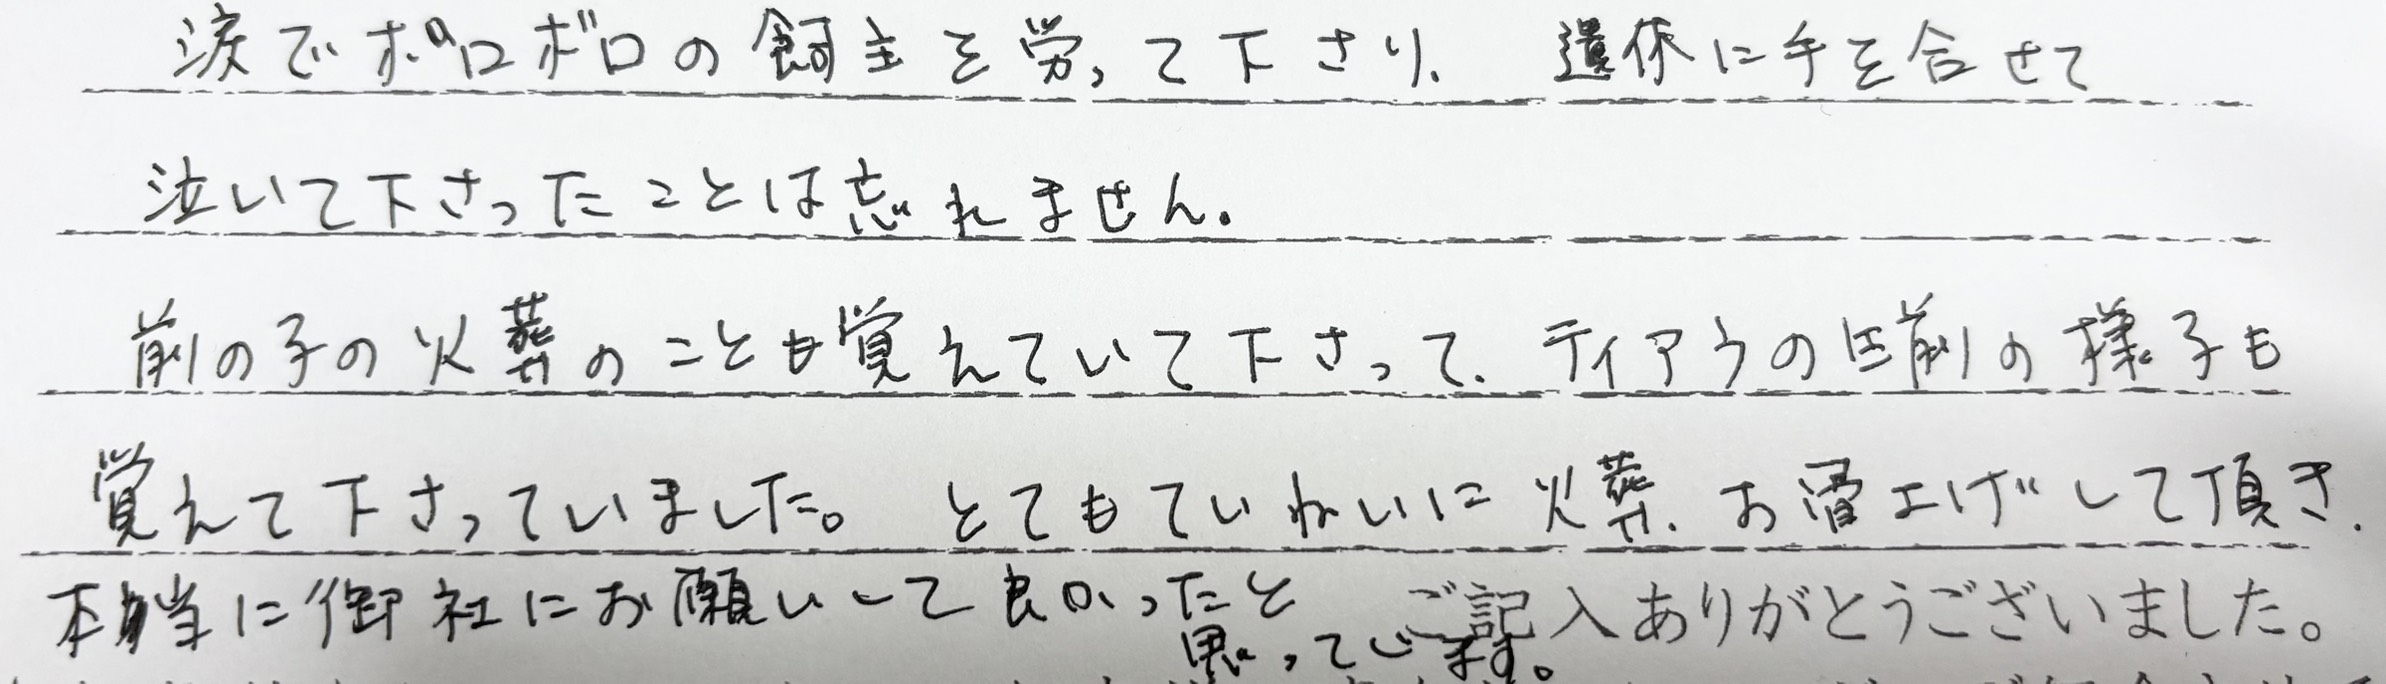 涙でボロボロの飼主を労って下さり、遺体に手を合せて
泣いて下さったことは忘れません。
前の子の火葬のことも覚えていて下さって、ティアラの生前の様子も
覚えて下さっていました。とてもていねいに火葬、お骨上げして頂き、
本当に御社にお願いして良かったと
思っています。
ご記入ありがとうございました。